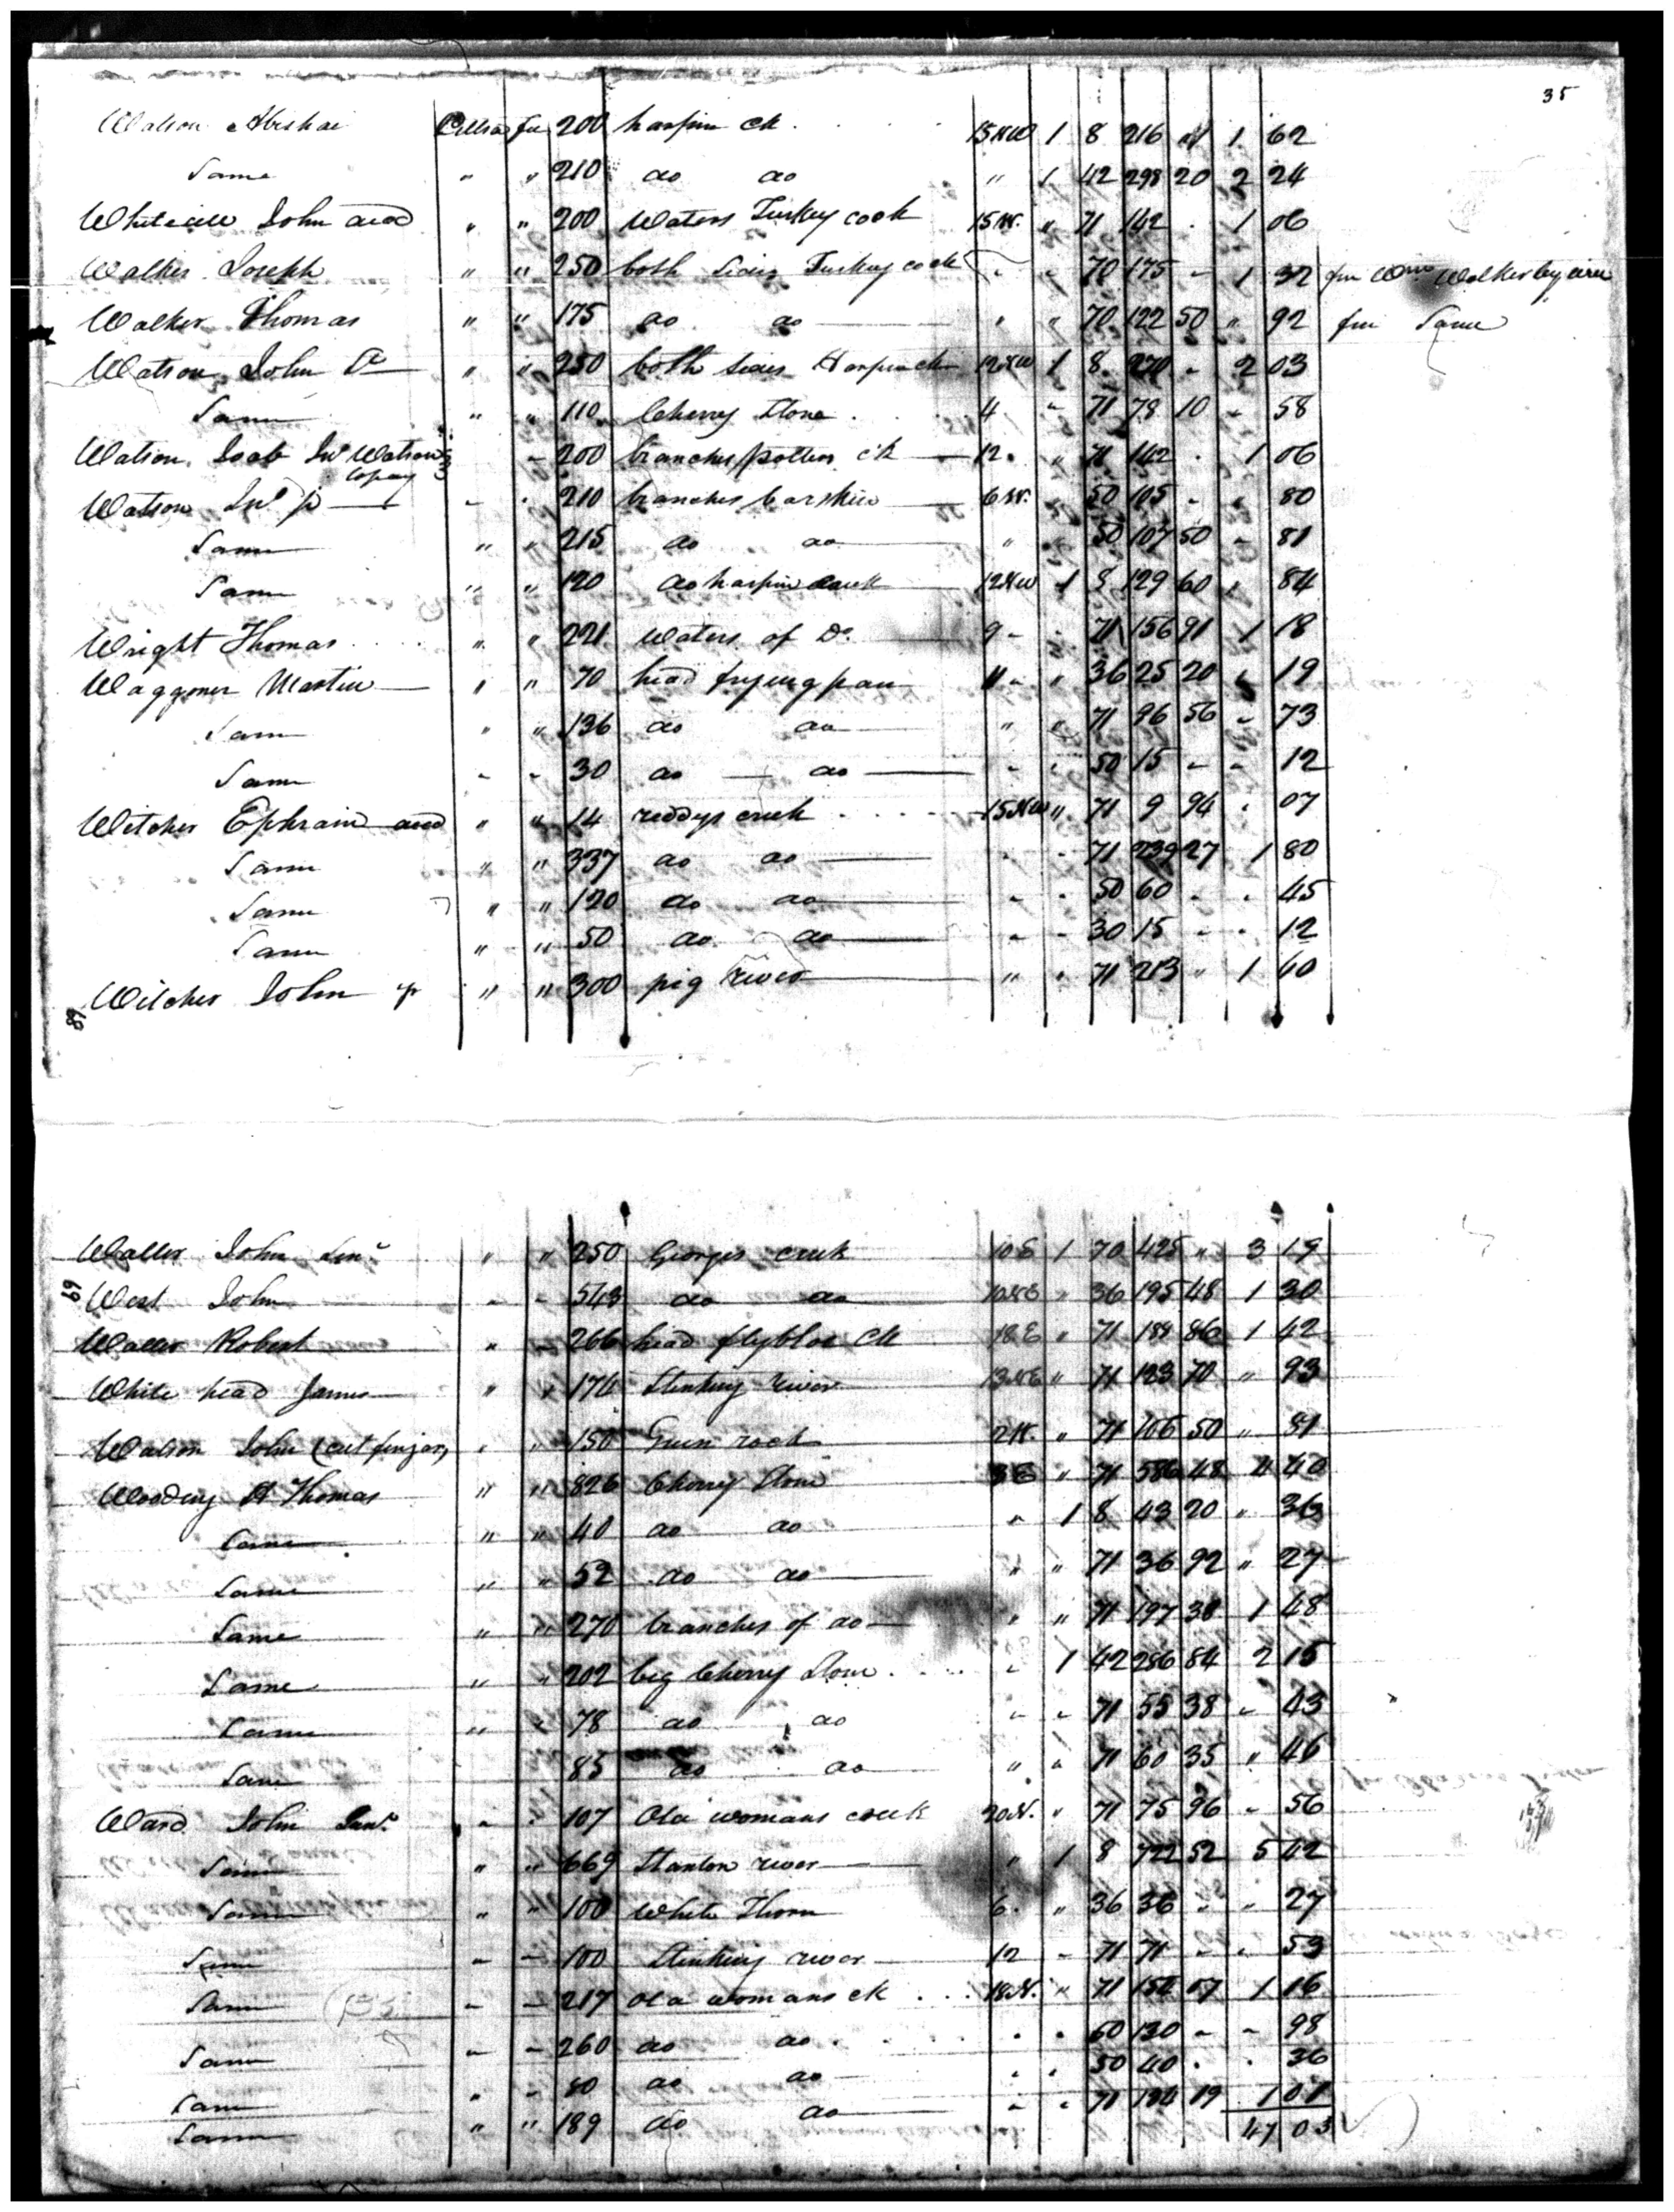 35
Watson Abishai Pittsa fee 200 harpin ck 15 NW 1 8 216 1 62
Same " " 210 do do " 1 42 298 20 2 24
John and " " 200 Waters Turkey cock 15 W. " 71 142 . 1 06
Walker Joseph " " 250 both sides Turkey cock - - 70 175 - 1 32 fm Wm Walker by
Walker Thomas " " 175 do do " " 70 122 50 " 92 fm Same
Watson John Sr " " 250 both sides Harpin ck 12 NW 1 8 270 - 2 03
Same " " 110 Cherry Stone 4 - 71 78 10 - 58
Watson Joab Jno Watson 200 branches potters ck 12 " 71 142 . 1 06
Watson Jno jr - . 210 branches bearskin 6 W. 50 105 - 80
Same " " 215 do do " 50 107 50 - 81
Same " " 120 do harpin creek 12 NW 1 8 129 60 84
Wright Thomas " " 221 waters of Do 9 - 71 156 91 1 18
Waggoner Martin " " 70 head frying pan 11 - " 36 25 20 19
Same " " 136 do do " " 71 96 56 - 73
Same - - 30 do do - 50 15 - - 12
Witcher Ephraim and " " 14 reddys creek 15 NW " 71 9 94 . 07
Same " " 337 do do . . 71 239 27 1 80
Same " " 120 do do - . 50 60 - . 45
Same " " 50 do do - - 30 15 - . 12
89
Witcher John jr " " 300 pig river " . 71 213 " 1 60
Waller John Senr " " 250 Georges creek 10 E 1 70 425 " 3 19
69
West John - - 543 do do 10 NE " 36 195 48 1 30
Waller Robert " - 266 head flyblow ck 18 E " 71 188 86 1 42
White head James " " 174 Stinking river 13 NE " 71 123 70 " 93
Watson John (cut finger) " " 150 Green rock 2 N. " 71 106 50 " 81
Wooding Thomas " " 826 Cherry Stone 3 E " 71 586 48 4 40
Same " " 40 do do " 1 8 43 20 " 36
Same " " 52 do do " " 71 36 92 " 27
Same " " 270 branches of do " " 71 197 38 1 48
Same " " 202 big Cherry Stone - 1 42 286 84 2 15
Same " " 78 do do - - 71 55 38 - 43
Same 85 do do " " 71 60 35 " 46
Ward John Senr " - 107 Old womans creek 20 N. " 71 75 96 - 56
Same " " 669 Stanton river " 1 8 722 52 5 42
Same " " 100 White Thorn 6 . " 36 36 - " 27
Same - - 100 Stinking river 12 - 71 71 - . 53
Same - - 217 Old womans ck 18 N. " 71 154 07 1 16
Same - - 260 do do . . 50 130 - - 98
Same " - 80 do do . . 50 40 . . 30
Same " " 189 do do - - 71 134 19 1 01
47 03